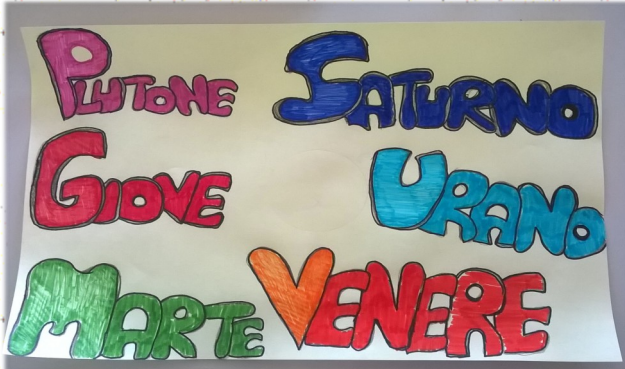 PLUTONE SATURNO
GIOVE URANO
MARTE VENERE